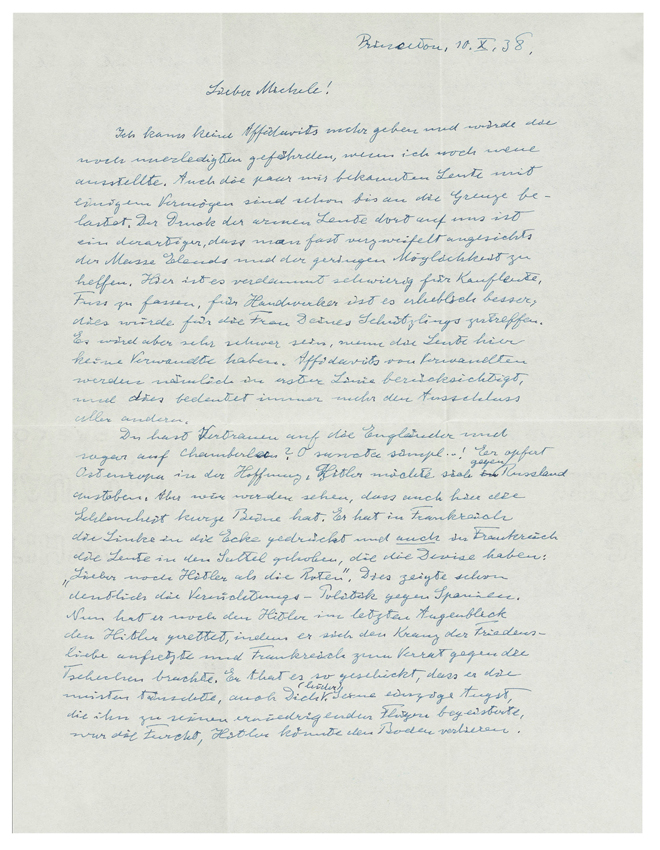 Princeton, 10. X. 38.
Lieber Michele!
Ich kann keine Affidavits mehr geben und würde die
noch unerledigten gefährden, wenn ich noch neue
ausstellte. Auch die paar mir bekannten Leute mit
einigem Vermögen sind schon bis an die Grenze be-
lastet. Der Druck der armen Leute dort auf uns ist
ein derartiger, dass man fast verzweifelt angesichts
der Masse Elends und der geringen Möglichkeit zu
helfen. Hier ist es verdammt schwierig für Kaufleute,
Fuss zu fassen, für Handwerker ist es erheblich besser;
dies würde für die Frau Deines Schützlings zutreffen.
Es wird aber sehr schwer sein, wenn die Leute hier
keine Verwandte haben. Affidavits von Verwandten
werden nämlich in erster Linie berücksichtigt,
und dies bedeutet immer mehr den Ausschluss
aller andern.
Du hast Vertrauen auf die Engländer und
sogar auf Chamberlain? O sancta simpl...! Er opfert
Osteuropa in der Hoffnung, Hitler möchte sich gegen Russland
austoben. Aber wir werden sehen, dass auch hier die
Schlauheit kurze Beine hat. Er hat in Frankreich
die Linke in die Ecke gedrückt und auch in Frankreich
die Leute in den Sattel gehoben, die die Devise haben:
„Lieber noch Hitler als die Roten". Dies zeigte schon
deutlich die Vernichtungs-Politik gegen Spanien.
Nun hat er noch den Hitler im letzten Augenblick
den Hitler gerettet, indem er sich den Kranz der Friedens-
liebe aufsetzte und Frankreich zum Verrat gegen die
Tschechen brachte. Er that es so geschickt, dass er die
meisten täuschte, auch Dich (leider). Seine einzige Angst,
die ihn zu seinen erniedrigenden Flügen begeisterte,
war die Furcht, Hitler könnte den Boden verlieren.